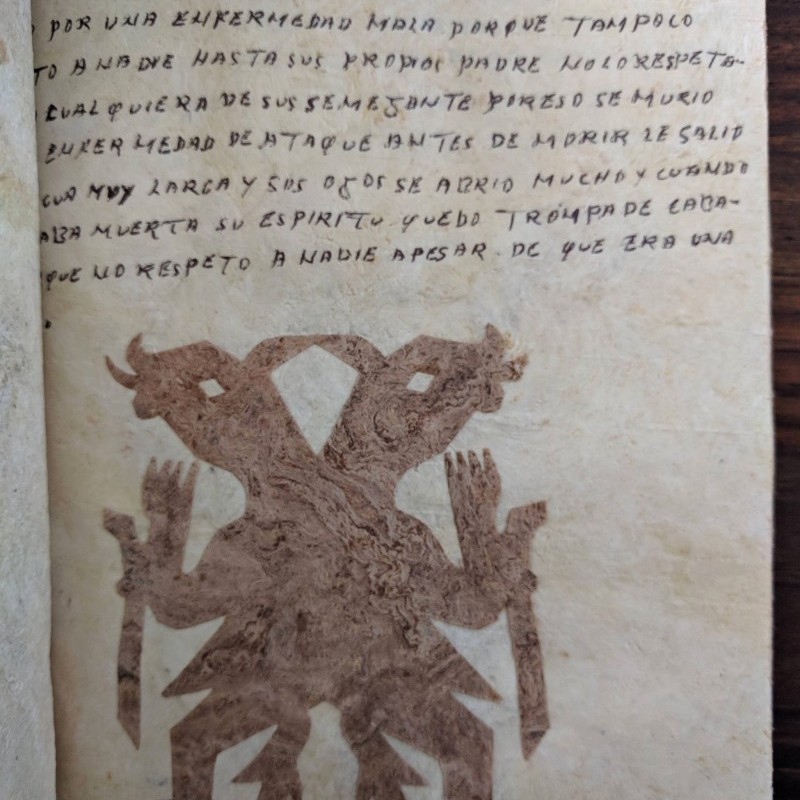 POR UNA ENFERMEDAD MALA PORQUE TAMPOCO
TO A NADIE HASTA SUS PROPIOS PADRE NOLORESPETA-
CUALQUIERA DE SUS SEMEJANTE PORESO SE MURIO
ENFERMEDAD DE ATAQUE ANTES DE MORIR LE SALIO
GUA MUY LARGA Y SUS OJOS SE ABRIO MUCHO Y CUANDO
ABA MUERTA SU ESPIRITU QUEDO TROMPA DE CABA-
QUE NO RESPETO A NADIE APESAR DE QUE ERA UNA